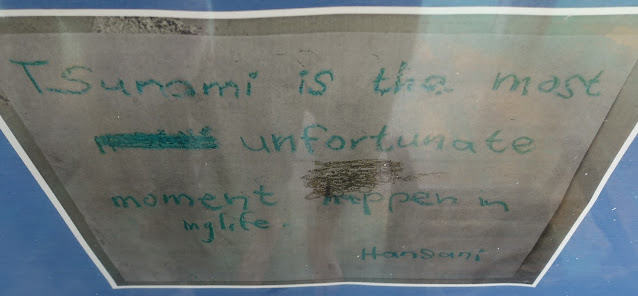 Tsunami is the most
unfortunate
moment happen in
my life.
Hansani